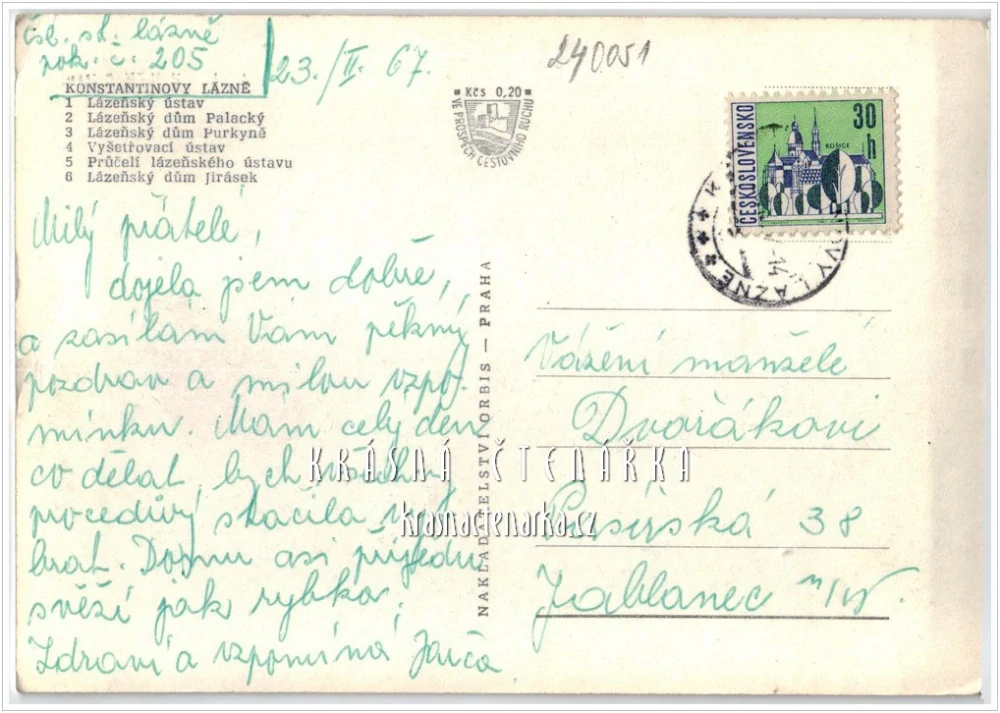 čsl. st. lázně
pok. č. 205
23./II. 67.
240051
KONSTANTINOVY LÁZNĚ
1 Lázeňský ústav
2 Lázeňský dům Palacký
3 Lázeňský dům Purkyně
4 Vyšetřovací ústav
5 Průčelí lázeňského ústavu
6 Lázeňský dům Jirásek
Kčs 0,20
VE PROSPĚCH CESTOVNÍHO RUCHU
ČESKOSLOVENSKO
30 h
KOŠICE
Milý přátelé,
dojela jsem dobře,
a zasílám Vám pěkný
pozdrav a milou vzpo-
mínku. Mám celý den
co dělat, bych všechny
procedury stačila vy-
brat. Domu asi přijedu
svěží jak rybka.
Zdraví a vzpomíná Jarča
NAKLADATELSTVÍ ORBIS — PRAHA
Vážení manželé
Dvořákovi
38
Jablonec n/N.
KRÁSNÁ ČTENÁŘKA
krasnactenarka.cz